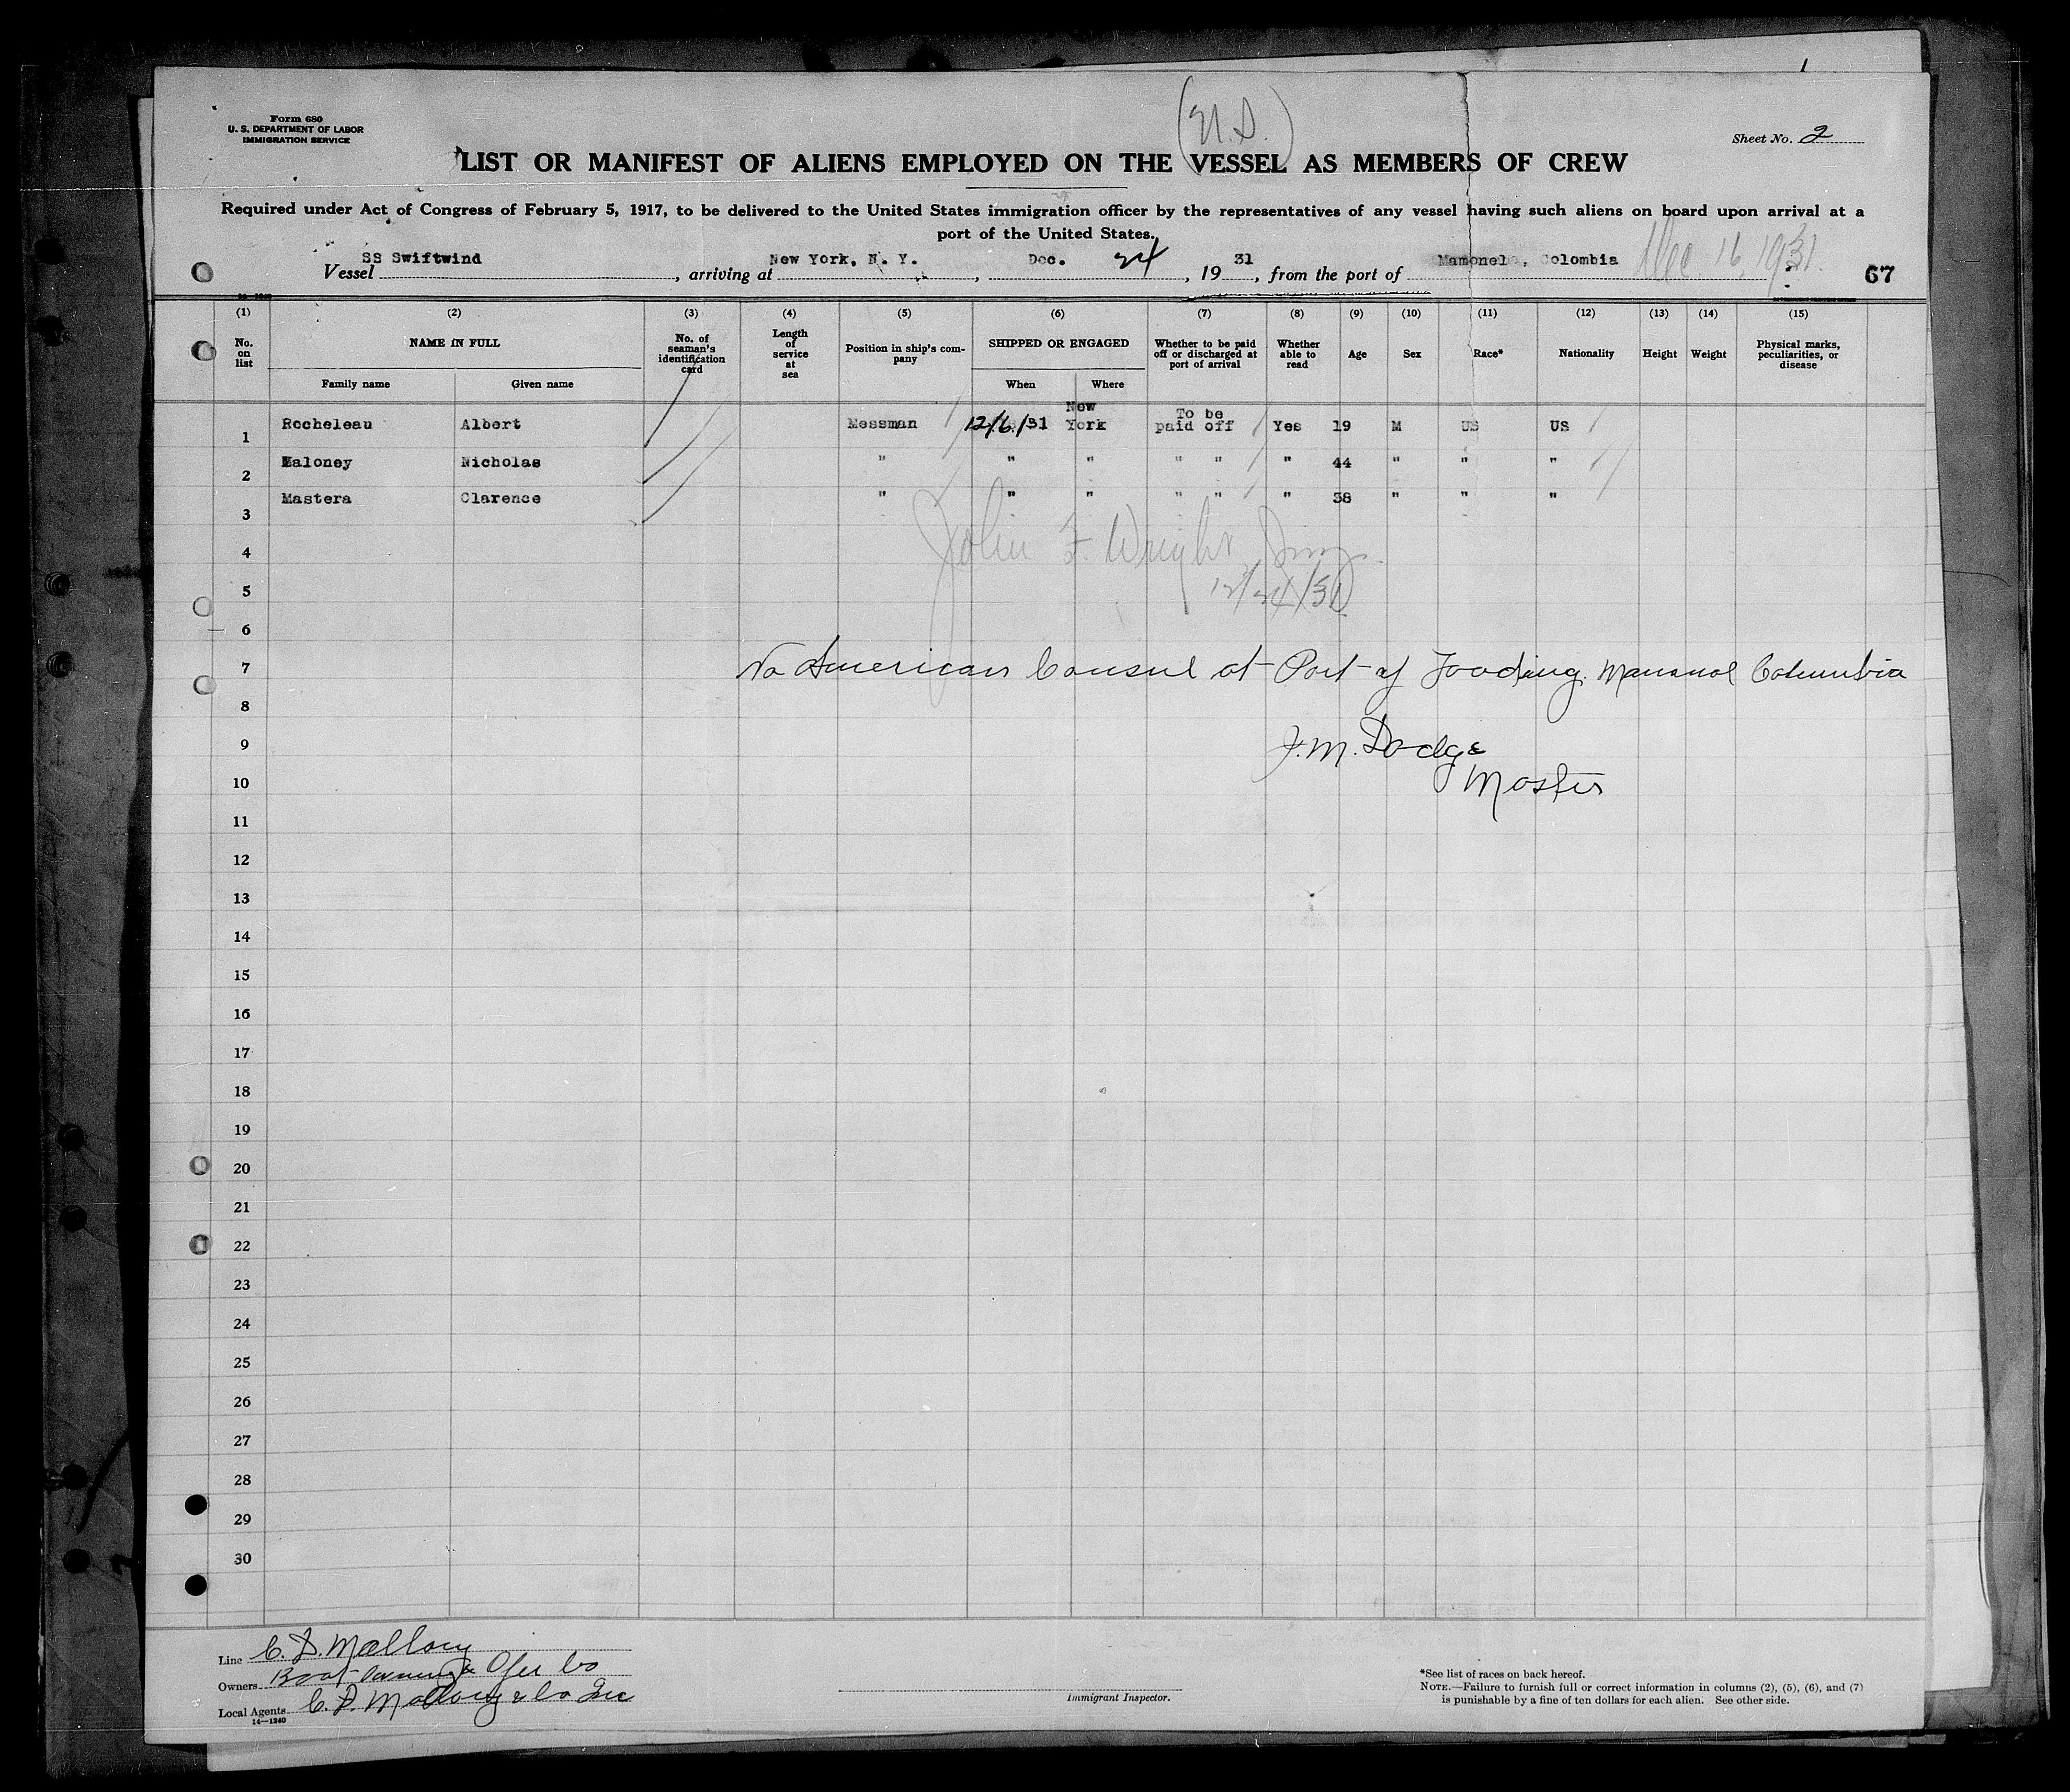 Form 680
U. S. DEPARTMENT OF LABOR
IMMIGRATION SERVICE
(U.S.)
Sheet No. 2
LIST OR MANIFEST OF ALIENS EMPLOYED ON THE VESSEL AS MEMBERS OF CREW
Required under Act of Congress of February 5, 1917, to be delivered to the United States immigration officer by the representatives of any vessel having such aliens on board upon arrival at a
port of the United States.
Vessel SS Swiftwind, arriving at New York, N. Y., Dec. 24, 1931, from the port of Mamonal, Colombia Dec 16, 1931. 67
14-1240
(1) (2) (3) (4) (5) (6) (7) (8) (9) (10) (11) (12) (13) (14) (15)
No. on list
NAME IN FULL
Family name Given name
No. of seaman's identification card
Length of service at sea
Position in ship's company
SHIPPED OR ENGAGED
When Where
Whether to be paid off or discharged at port of arrival
Whether able to read
Age
Sex
Race*
Nationality
Height
Weight
Physical marks, peculiarities, or disease
1 Rocheleau Albert Messman 12/6/31 New York To be paid off Yes 19 M US US
2 Maloney Nicholas " " " " " " 44 " " "
3 Mastera Clarence " " " " " " 38 " " "
4
John F. Wright
5
12/24/31
6
7 No American Consul at Port of Loading. Mamonal Columbia
8
9 J. M. Dodge
10 Master
11
12
13
14
15
16
17
18
19
20
21
22
23
24
25
26
27
28
29
30
Line C. D. Mallory
Owners Boat Owning & Oper Co
Local Agents C. D. Mallory & Co Inc
14-1240
Immigrant Inspector.
*See list of races on back hereof.
NOTE.—Failure to furnish full or correct information in columns (2), (5), (6), and (7)
is punishable by a fine of ten dollars for each alien. See other side.